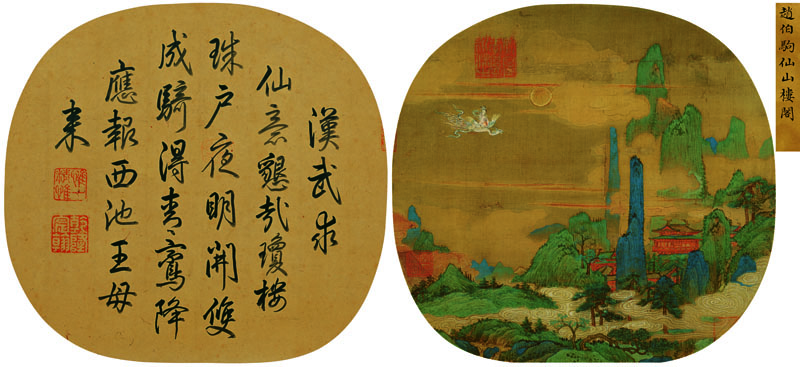 趙伯駒仙山樓閣
漢武求
仙意懇哉瓊樓
珠戶夜明開雙
成騎得青鸞降
應報西池王母
来